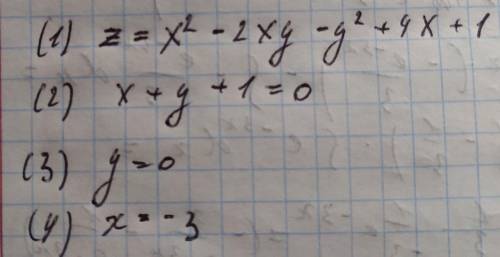 (1) z = x² - 2xy - y² + 4x + 1
(2) x + y + 1 = 0
(3) y = 0
(4) x = -3